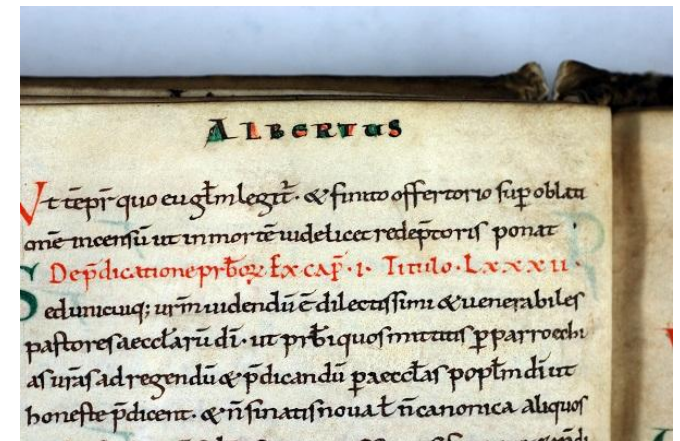 ALBERTUS
Ut tēpr̄ quo euḡlm legit̄ · & finito offertorio sup̄ oblati
onē incensū ut in mortē uidelicet redēptoris ponat
De p̄dicatione prb̄orꝝ. Ex cap̄ · i · Titulo · Lxxxii ·
Sed unicuiq; ur̄m uidendū ē dilectissimi & uenerabiles
pastores aeccl̄arū dī · ut prb̄i quos mittitis p̄ parroechi
as ur̄as ad regendū & p̄dicandū p̄ aeccl̄as popl̄m dī ut
honeste p̄dicent · & n̄ sinatis noua ł n̄ canonica aliquos